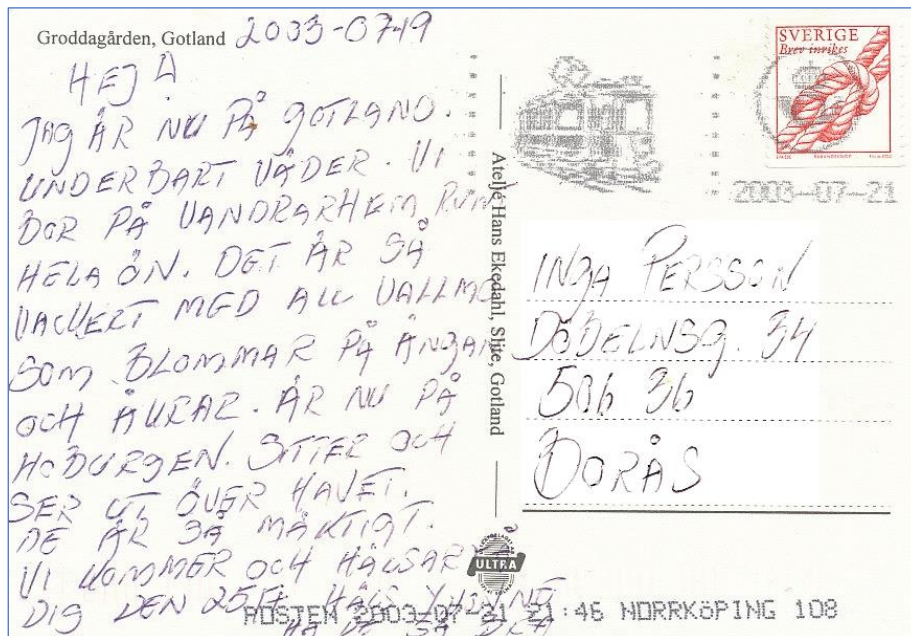 Groddagården, Gotland 2003-07-19
HEJ
JAG ÄR NU PÅ GOTLAND.
UNDERBART VÄDER. VI
BOR PÅ VANDRARHEM RUNT
HELA ÖN. DET ÄR SÅ
VACKERT MED ALL VALLMO
SOM BLOMMAR PÅ ÄNGAR
OCH ÅKRAR. ÄR NU PÅ
HOBURGEN. SITTER OCH
SER UT ÖVER HAVET.
DE ÄR SÅ MÄKTIGT.
VI KOMMER OCH HÄLSAR PÅ
DIG DEN 25
HA DE SÅ BRA
Ateljé Hans Ekedahl, Slite, Gotland
ULTRA
SVERIGE
Brev inrikes
2003-07-21
INGA PERSSON
DÖBELNSG. 34
506 36
BORÅS
POSTEN 2003-07-21 21:46 NORRKÖPING 108